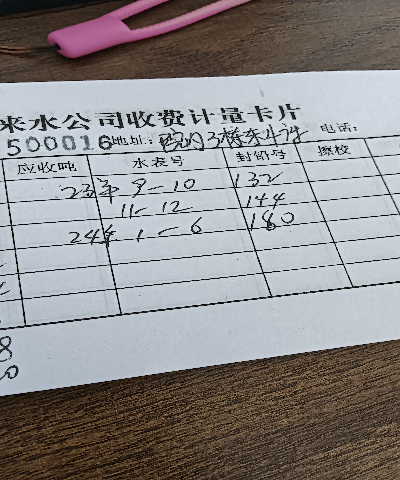 来水公司收费计量卡片
500016 地址: 院内3栋东4许 电话:
应收吨 水表号 封铅号 擦校
23年 9-10 132
11-12 144
24年 1-6 180
8